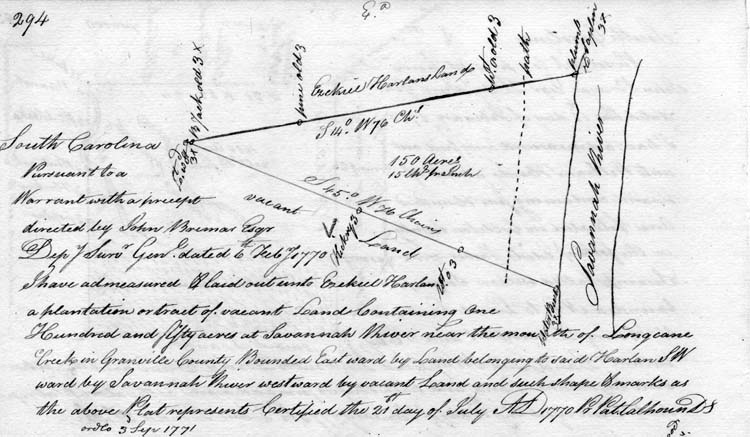 294
E.a
3x
Jack old 3x
pine old 3
Ezekiel Harlans Land
old 3
path
plumb
& Saplin
3x
S 14° W 76 Chs
South Carolina
Pursuant to a
150 Acres
Warrant with a precept
vacant
S 45° W 76 Chains
directed by John Bremar Esqr
Hickory 3
Land
Savannah River
Depy Survr Genl dated 6th Feby 1770
I have admeasured & laid out unto Ezekiel Harlan
a plantation or tract of vacant Land Containing One
Hundred and fifty acres at Savannah River near the mouth of Longcane
Creek in Granville County Bounded Eastward by Land belonging to said Harlan SW
ward by Savannah River westward by vacant Land and such shape & marks as
the above Plat represents Certified the 21st day of July AD 1770 Pr Pat Calhoun D S
ord Co 3 Sep 1771